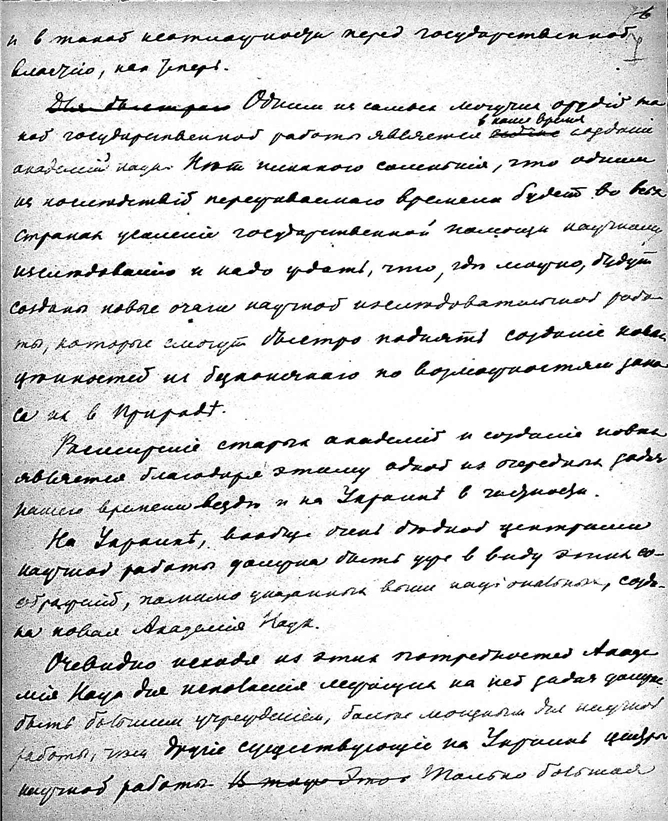 6
и в такой неотлагательности перед государственной
властью, как теперь.
Для быстраго Одним из самых могучих орудий та
кой государственной работы является в наше время создание
академий наук. Нѣт никакого сомнѣния, что одним
из последствий переживаемаго времени будет во всех
странах усиленіе государственной помощи научному
изслѣдованию и надо ждать, что, гдѣ можно, будут
созданы новые очаги научной изслѣдовательной рабо
ты, которые смогут быстро поднять созданіе новых
цѣнностей из безконечнаго по возможностям запа
са их в Природѣ.
Расширеніе старых академій и созданіе новых
является благодаря этому одной из очередных задач
нашего времени вездѣ и на Украинѣ в частности.
На Украинѣ, вообще очень бѣдной центрами
научной работы должна быть уже в виду этих со-
ображений, помимо указанных выше національных, созда-
на новая Академія Наук.
Очевидно исходя из этих потребностей Акаде
мія Наук для исполненія лежащих на ней задач должна
быть большим учрежденіем, болѣе мощным для научной
работы, чѣм другіе существующіе на Украинѣ центры
научной работы. Только большая